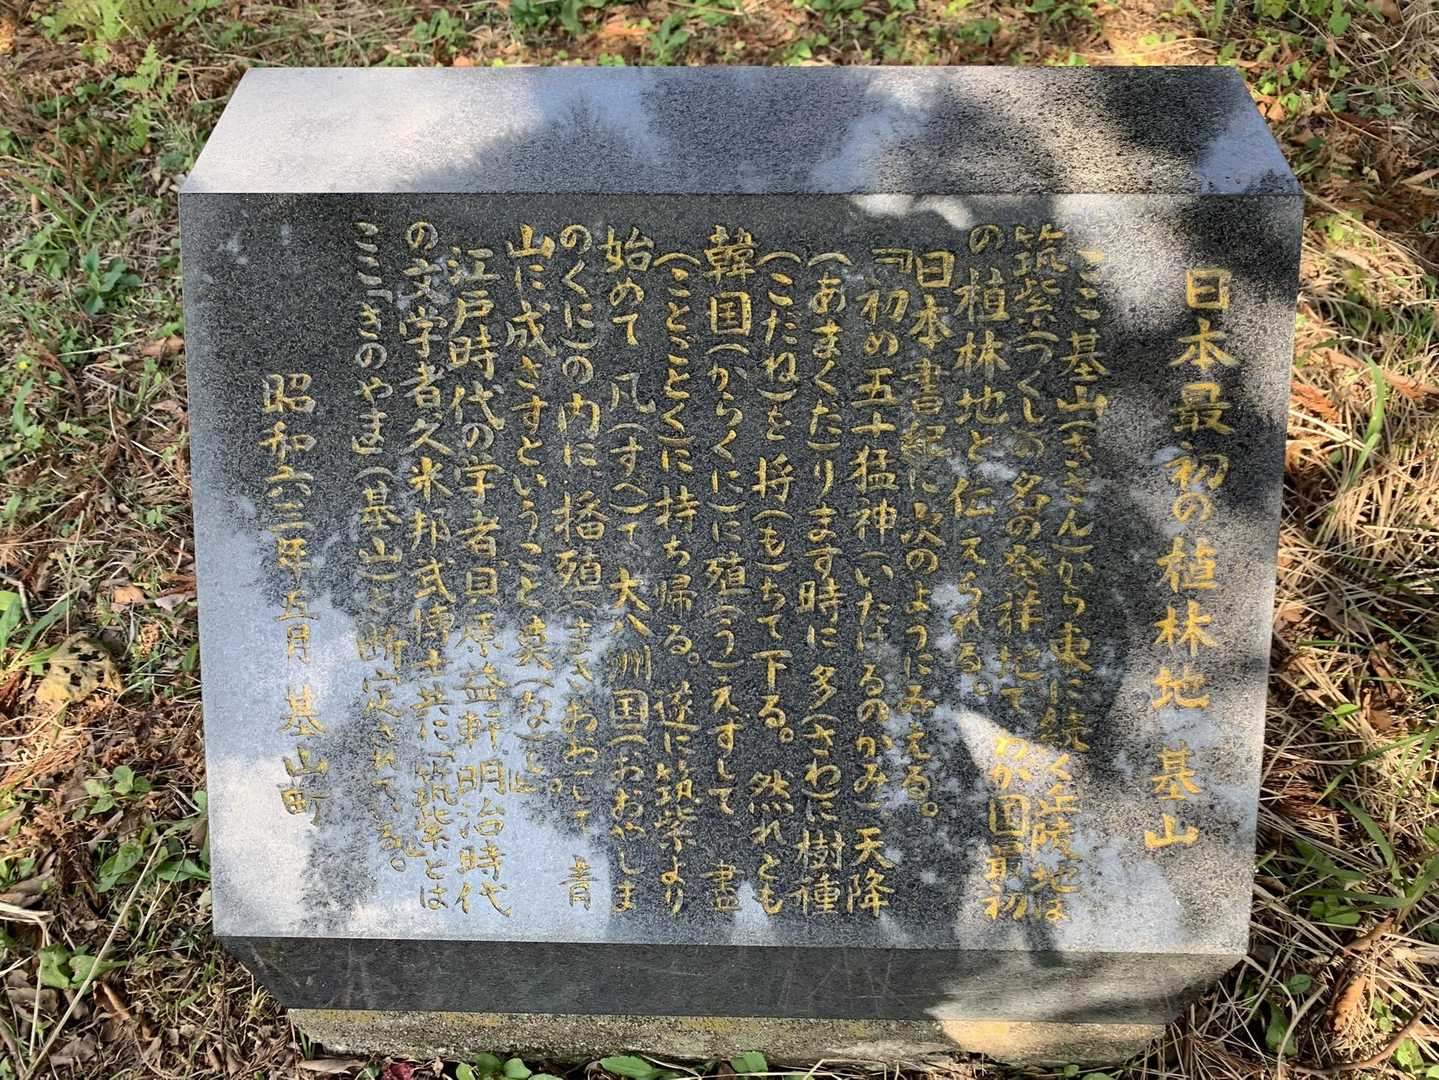 日本最初の植林地 基山
ここ基山(きざん)から東に続く丘陵地は
筑紫(つくし)の名の発祥地で わが国最初
の植林地と伝えられる。
日本書起に 次のようにみえる。
『初め五十猛神(いたけるのかみ)天降
(あまくだ)ります時に多(さわ)に樹種
(こたね)を将(も)ちて下る。然れども
韓国(からくに)に殖(う)えずして 盡
(ことごとく)に持ち帰る。遂に筑紫より
始めて 凡(すべ)て 大八洲国(おおやしま
のくに)の内に播殖(まきおお)して 青
山に成さずということ莫(な)し』。
江戸時代の学者貝原益軒 明治時代
の文学者久米邦武博士共に「筑紫」とは
ここ「きのやま」(基山)と断定されている。
昭和六二年五月 基山町